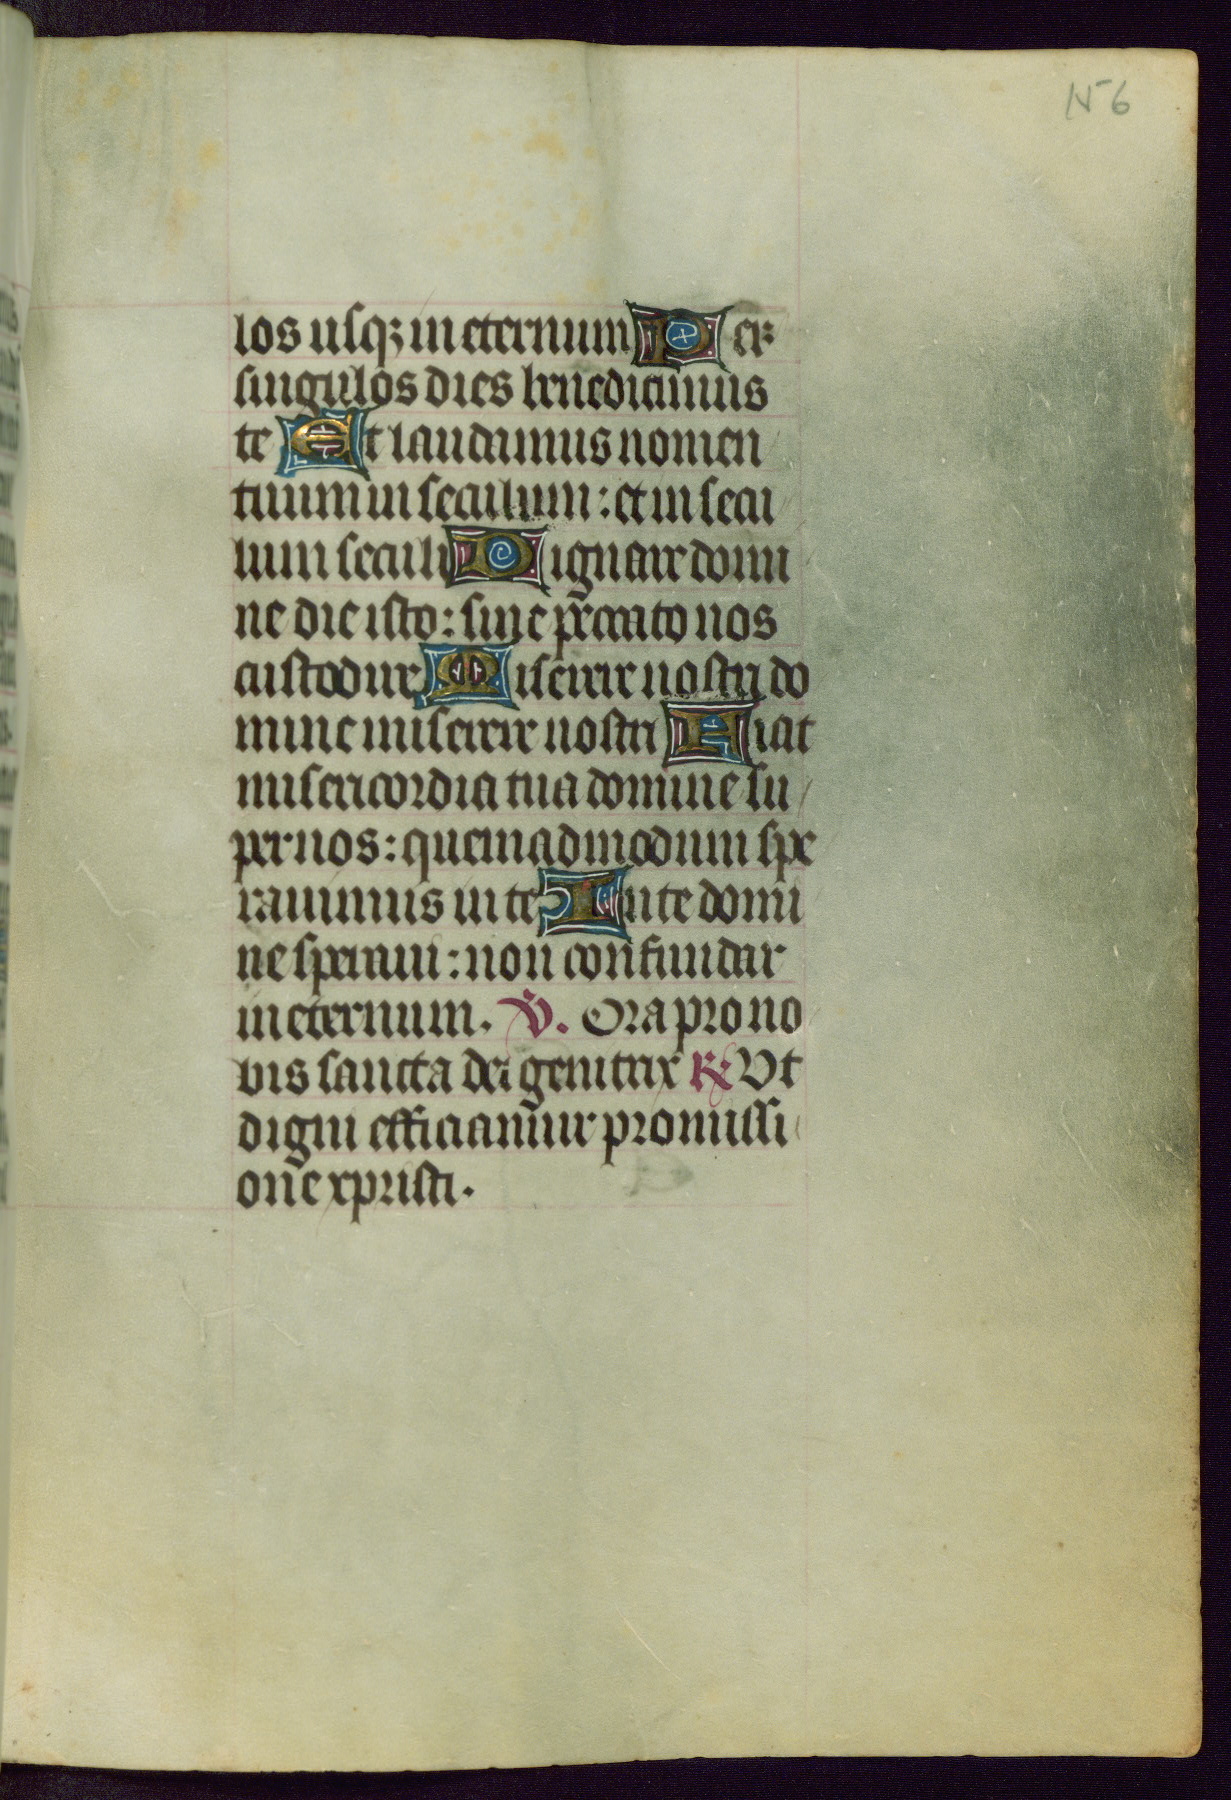 156
los usq; in eternum Per
singulos dies benedicimus
te Et laudamus nomen
tuum in seculum : et in secu
lum seculi Dignare domi
ne die isto : sine peccato nos
custodire Miserere nostri do
mine miserere nostri Fiat
misericordia tua domine su
per nos : quemadmodum spe
rauimus in te In te domi
ne speraui : non confundar
in eternum. V. Ora pro no
bis sancta dei genitrix R Ut
digni efficiamur promissi
one xpristi.